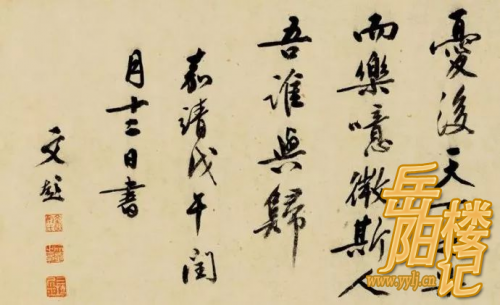 憂後天
而樂噫微斯人
吾誰與歸
嘉靖戊午閏
月十二日書
文彭
岳阳楼记
www.yylj.cn